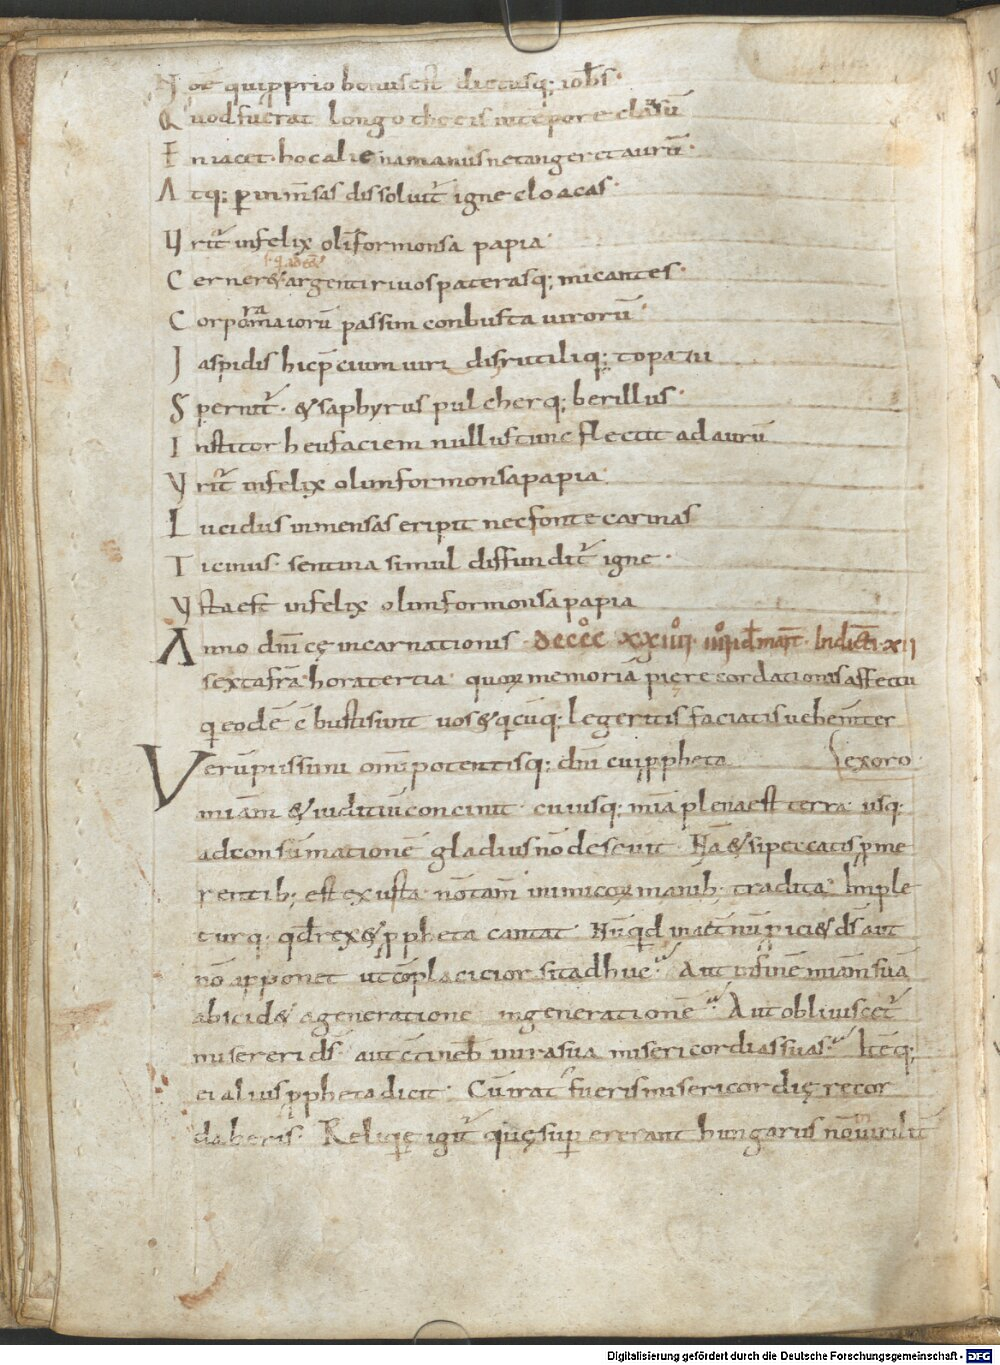 N oĩe quipprio bonus est dictusq; iohs·
Q uod fuerat longo thecis intẽpore clausũ
I n iacet· hoc alienamanus ne tangeret aurũ·
A tq; p inm̃sas dissoluit̃ igne cloacas·
U rit̃ infelix oli formonsa papia·
C erner& argenti riuos paterasq; micantes·
C orpora maiorũ passim conbusta uirorũ·
J aspidis hic p̃cium uiridis rutiliq; topazii
S pernit̃· & saphyrus pulcherq; berillus·
I nstitor heu faciem nullus tunc flectit ad aurũ
U rit̃ infelix olim formonsa papia·
L ucidus inmensas eripit nec fonte carinas
T icinus· sentina simul diffundit̃ igne·
U sta est infelix olim formonsa papia
A nno dnĩcę incarnationis· dcccc xxiiii· iiii· id· mart̃· Indicti· xii
sexta fr̃a hora tertia· quor memoriã pie recordationis affectu
q eodẽ ĩ busti sunt uos & qcũq; legeritis faciatis uehem̃ter
Verũ piissimi om̃ipotentisq; dnĩ cui ppheta exoro·
miam̃ & iuditiũ concinit· cuiusq; mĩa plena est terra· usq·
ad consũmationẽ gladius nõ deseuit· Nã & si peccatis p me
rentib; est exusta· nõ tam̃ inimicor manib; tradita· Imple
turq· qd rex & ppheta cantat· Nũqd in aet̃nũ piciet ds̃ aut
nõ apponet ut cõplacicior sit adhuc· Aut in finẽ miam̃ suã
abicid& a generatione in generationẽ· Aut obliuiscet̃
misereri ds̃· aut c̃tineb in ira sua misericordias suas· Itẽq;
ei alius ppheta dicit· Cũ irat' fueris misericordię recor
daberis· Reliqię igit̃ quę supererant hungarus nõ uirilit̃
Digitalisierung gefördert durch die Deutsche Forschungsgemeinschaft - DFG